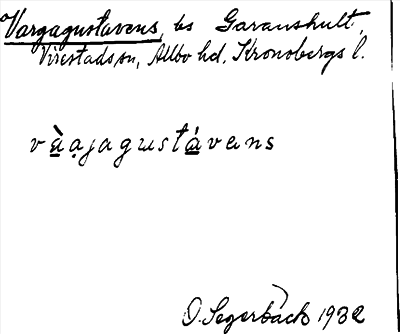 Vargagustavens, bs Garanshult,
Virestads sn, Allbo hd, Kronobergs l.
vàạjagustávens
O. Segerbäck 1932